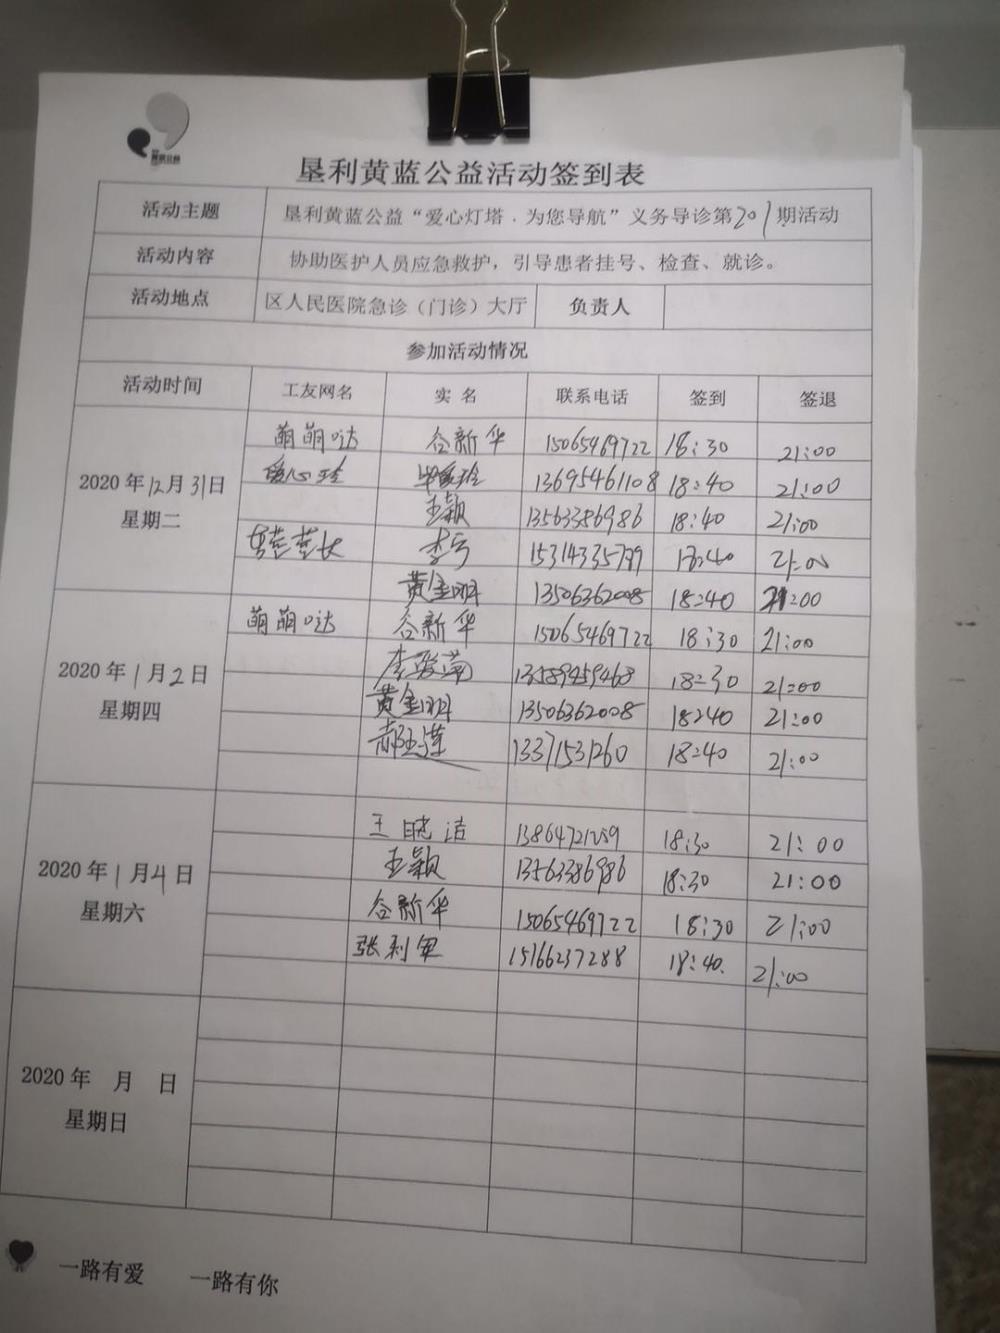 垦利黄蓝公益活动签到表
活动主题 垦利黄蓝公益“爱心灯塔·为您导航”义务导诊第201期活动
活动内容 协助医护人员应急救护，引导患者挂号、检查、就诊。
活动地点 区人民医院急诊（门诊）大厅 负责人
参加活动情况
活动时间 工友网名 实 名 联系电话 签到 签退
萌萌哒 谷新华 15065469722 18:30 21:00
2020年12月31日 爱心玲 13695461108 18:40 21:00
星期二 王颖 13563386986 18:40 21:00
李 15314335799 18:40 21:00
黄金明 13506362008 18:40 21:00
萌萌哒 谷新华 15065469722 18:30 21:00
2020年1月2日 李 13589959468 18:30 21:00
星期四 黄金明 13506362008 18:40 21:00
郝 莲 13371531260 18:40 21:00
王晓洁 13864721259 18:30 21:00
2020年1月4日 王颖 13563386986 18:30 21:00
星期六 谷新华 15065469722 18:30 21:00
张利军 15166237288 18:40 21:00
2020年 月 日
星期日
一路有爱 一路有你